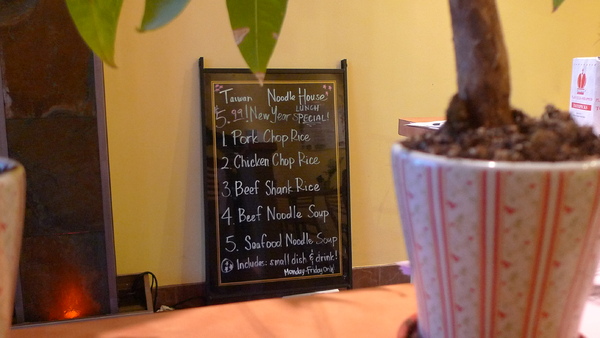 Taiwan Noodle House
$5.99! New Year LUNCH SPECIAL!
1 Pork Chop Rice
2 Chicken Chop Rice
3. Beef Shank Rice
4. Beef Noodle Soup
5. Seafood Noodle Soup
Includes: small dish & drink!
Monday-Friday Only!